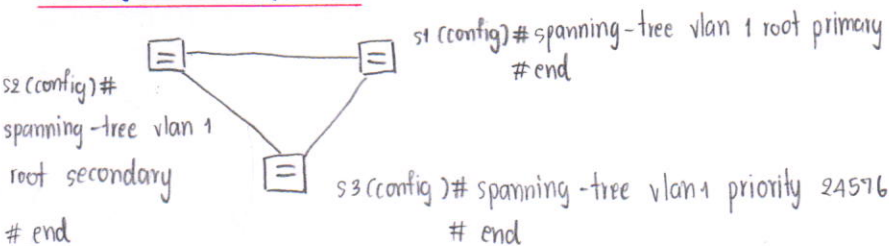 s1 (config)# spanning-tree vlan 1 root primary
# end
s2 (config)#
spanning-tree vlan 1
root secondary
# end
s3 (config)# spanning-tree vlan 1 priority 24576
# end